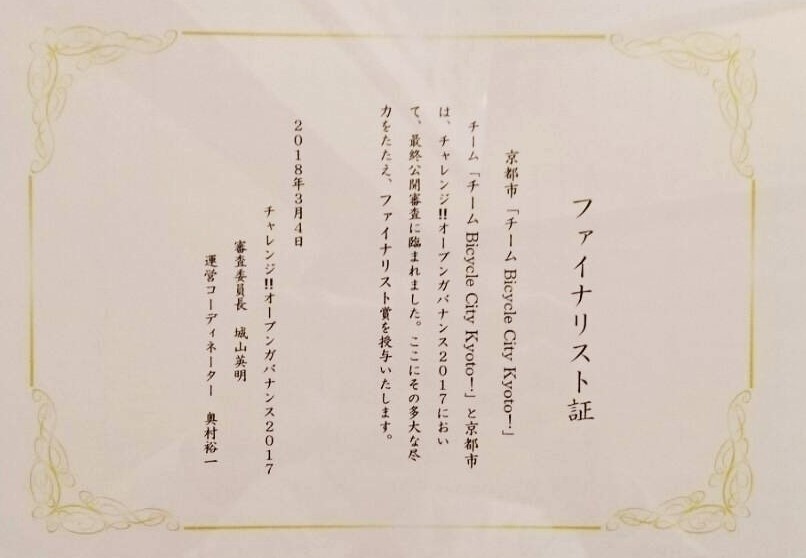 ファイナリスト証
京都市「チーム Bicycle City Kyoto!」
チーム「チーム Bicycle City Kyoto!」と京都市
は、チャレンジ!!オープンガバナンス2017におい
て、最終公開審査に臨まれました。ここにその多大な尽
力をたたえ、ファイナリスト賞を授与いたします。
2018年3月4日
チャレンジ!!オープンガバナンス2017
審査委員長 城山英明
運営コーディネーター 奥村裕一